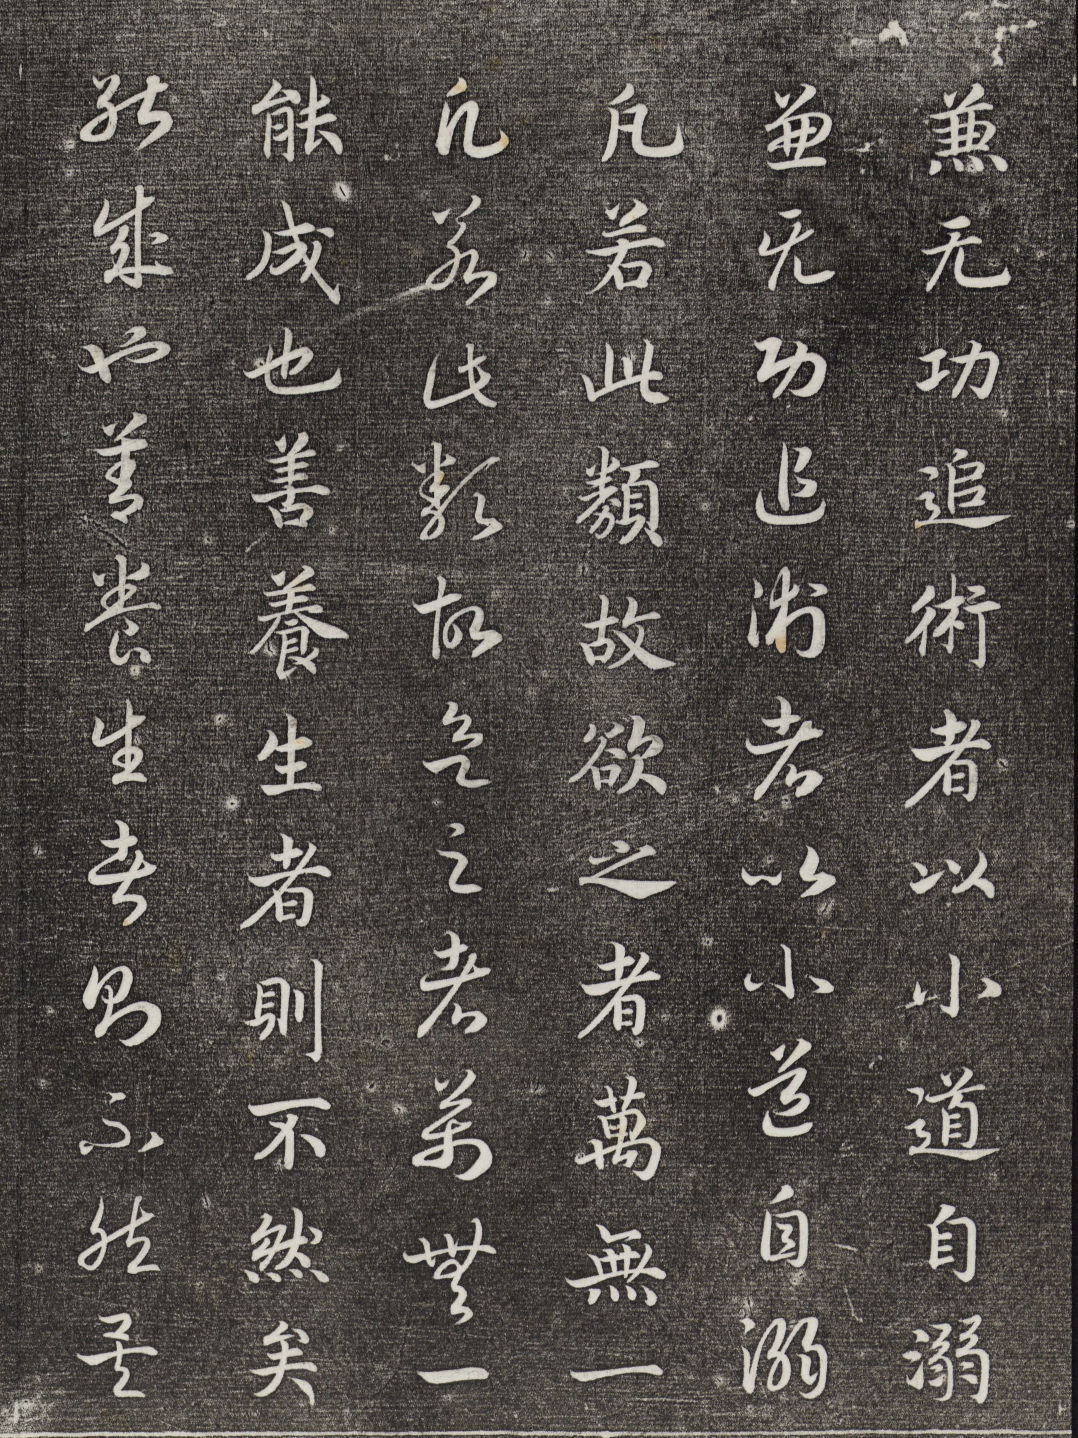 兼无功追術者以小道自溺
兼无功追術者以小道自溺
凡若此類故欲之者萬無一
凡若此類故欲之者萬無一
能成也善養生者則不然矣
能成也善養生者則不然矣